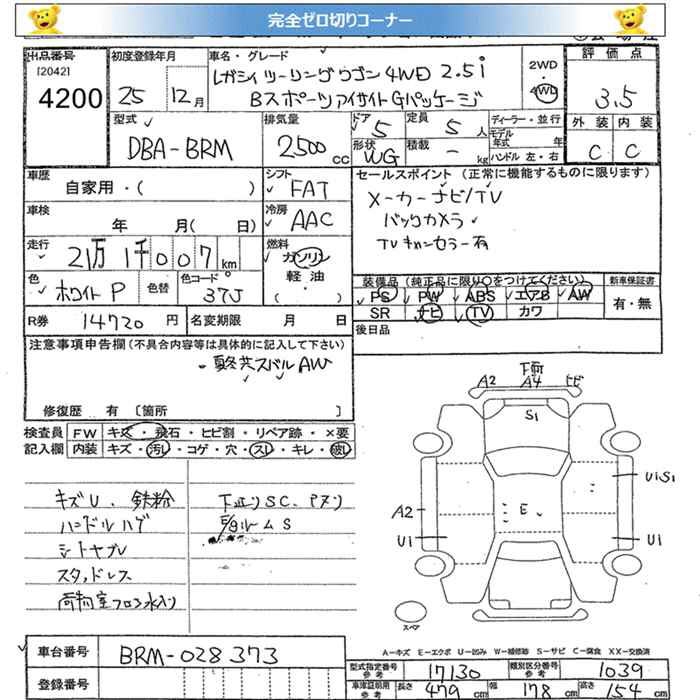 完全ゼロ切りコーナー
出品番号
[2042]
4200
初度登録年月
25 12月
車名・グレード
レガシィツーリングワゴン4WD 2.5i
Bスポーツアイサイト Gパッケージ
2WD
・
4WD
評価点
3.5
外装 内装
C C
型式
DBA-BRM
排気量
2500 cc
ドア 5
定員 5 人
形状 WG
積載 - kg
ディーラー・並行
モデル年式 年
ハンドル 左・右
車歴
自家用・( )
シフト FAT
車検
年 月( 日)
冷房 AAC
走行
21万1千007km
燃料
ガソリン
軽油
( ・ )
色
ホワイトP
色替
色コード
37J
R券 14720 円
名変期限 月 日
セールスポイント (正常に機能するものに限ります)
メーカーナビ/TV
バックカメラ
TVキャンセラー有
装備品 (純正品に限り○をつけてください)
PS PW ABS エアB AW
SR ナビ TV カワ
新車保証書
有・無
後日品
注意事項申告欄 (不具合内容等は具体的に記入して下さい)
・夏冬共スバルAW
修復歴 有 〔箇所 〕
検査員 記入欄
FW キズ・飛石・ヒビ割・リペア跡・×要
内装 キズ・汚レ・コゲ・穴・スレ・キレ・破レ
キズU、鉄粉
ハンドルハゲ
シートヤブレ
スタッドレス
荷物室フロア水入り
下廻りSC、Pヌリ
ルームS
下廻
A2 A4 ヒビ
S1
U1S1
A2
E
U1 U1
スペア
A-キズ E-エクボ U-凹み W-補修跡 S-サビ C-腐食 XX-交換済
車台番号 BRM-028373
登録番号
型式指定番号 参考 17130
類別区分番号 参考 1039
車庫証明用 参考 長さ 479 cm 幅 178 cm 高さ 154 cm